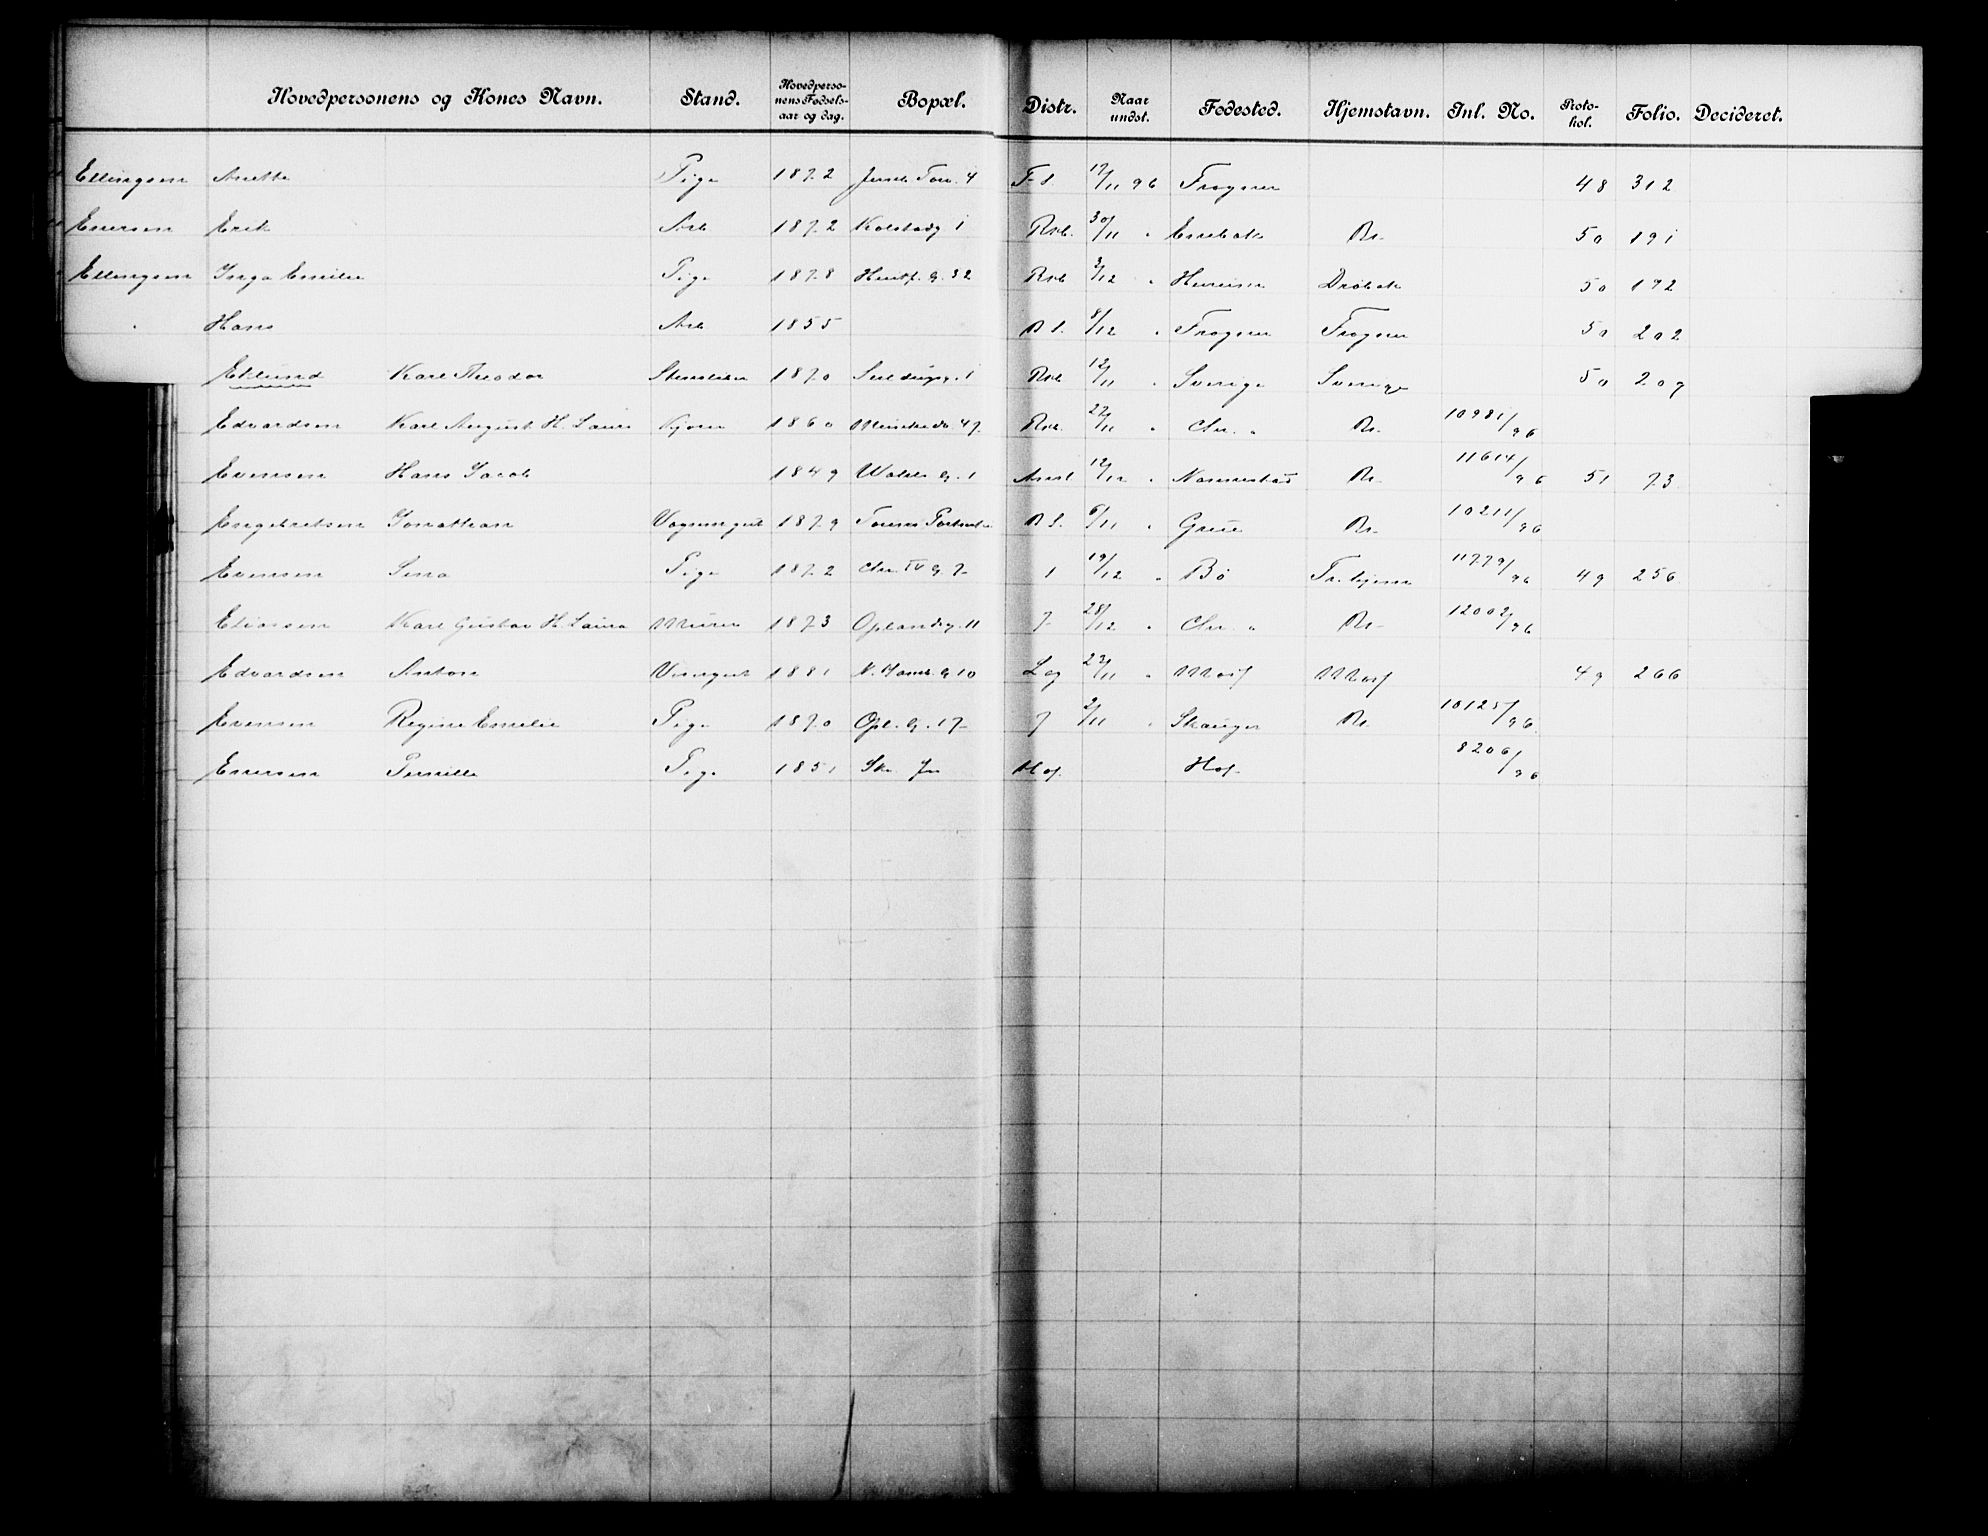 Hovedpersonens og Kones Navn. Stand. Hovedpersonens Fødselsaar og dag. Bopæl. Distr. Naar undst. Fødested. Hjemstavn. Inl. No. Protokol. Folio. Decideret.
Ellingsen Anette Pige 1872 4 17/11 96 Frogner 48 312
Enersen Erik Arb 1872 Kolstadg 1 Rvb. 30/11 " Enebak Kr. 50 191
Ellingsen Inga Emilie Pige 1878 G. 32 Rvb 3/12 " Drøbak 50 192
" Hans Arb 1855 8/12 " Frogner Frogner 50 202
Edlund Karl Theodor 1870 1 Rvb 12/11 " Sverige Sverige 50 207
Edvardsen Karl August H. Laura Kjører 1860 47 Rvb. 27/11 " Chr. " Kr. 10981/96
Evensen Hans Jacob 1849 G. 1 12/12 " Nannestad Kr. 11614/96 51 73
Engebretsen Jonathan 1879 6/11 " Grue Kr. 10211/96
Evensen Sina Pige 1872 Chr. IV G. 7 1 19/12 " Bø 11779/96 49 256
Eliassen Karl Gustav H. Laura Murer 1873 Oplandsg. 11 7 28/12 " Chr. " Kr. 12002/96
Edvardsen Anton Visergut 1881 10 23/11 " 49 266
Evensen Regine Emilie Pige 1870 Opl. G. 17 7 2/11 " Skauger Kr. 10125/96
Enersen Pernille Pige 1851 Hof. Hof. 8206/96